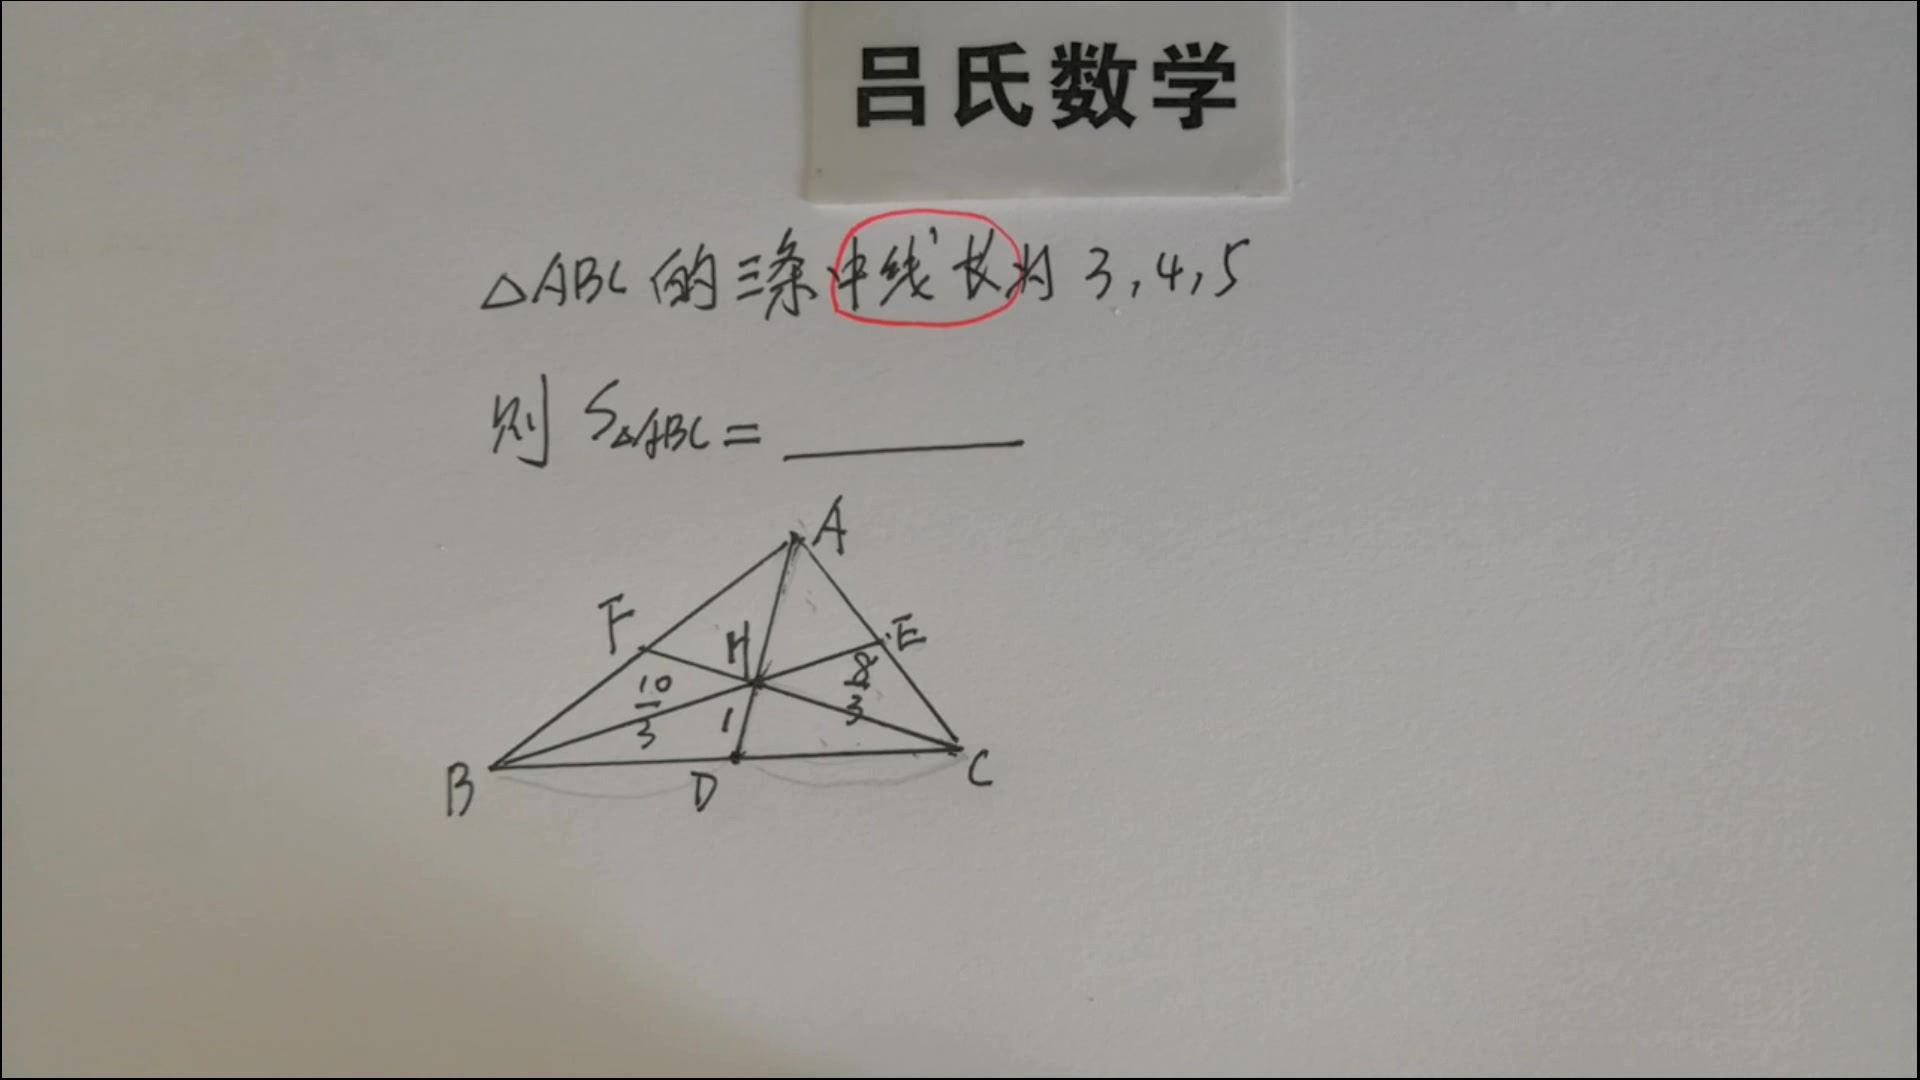 吕氏数学
△ABC的三条中线长为3,4,5
则 S△ABC=
A
F
H
E
10/3
8/3
1
B
D
C